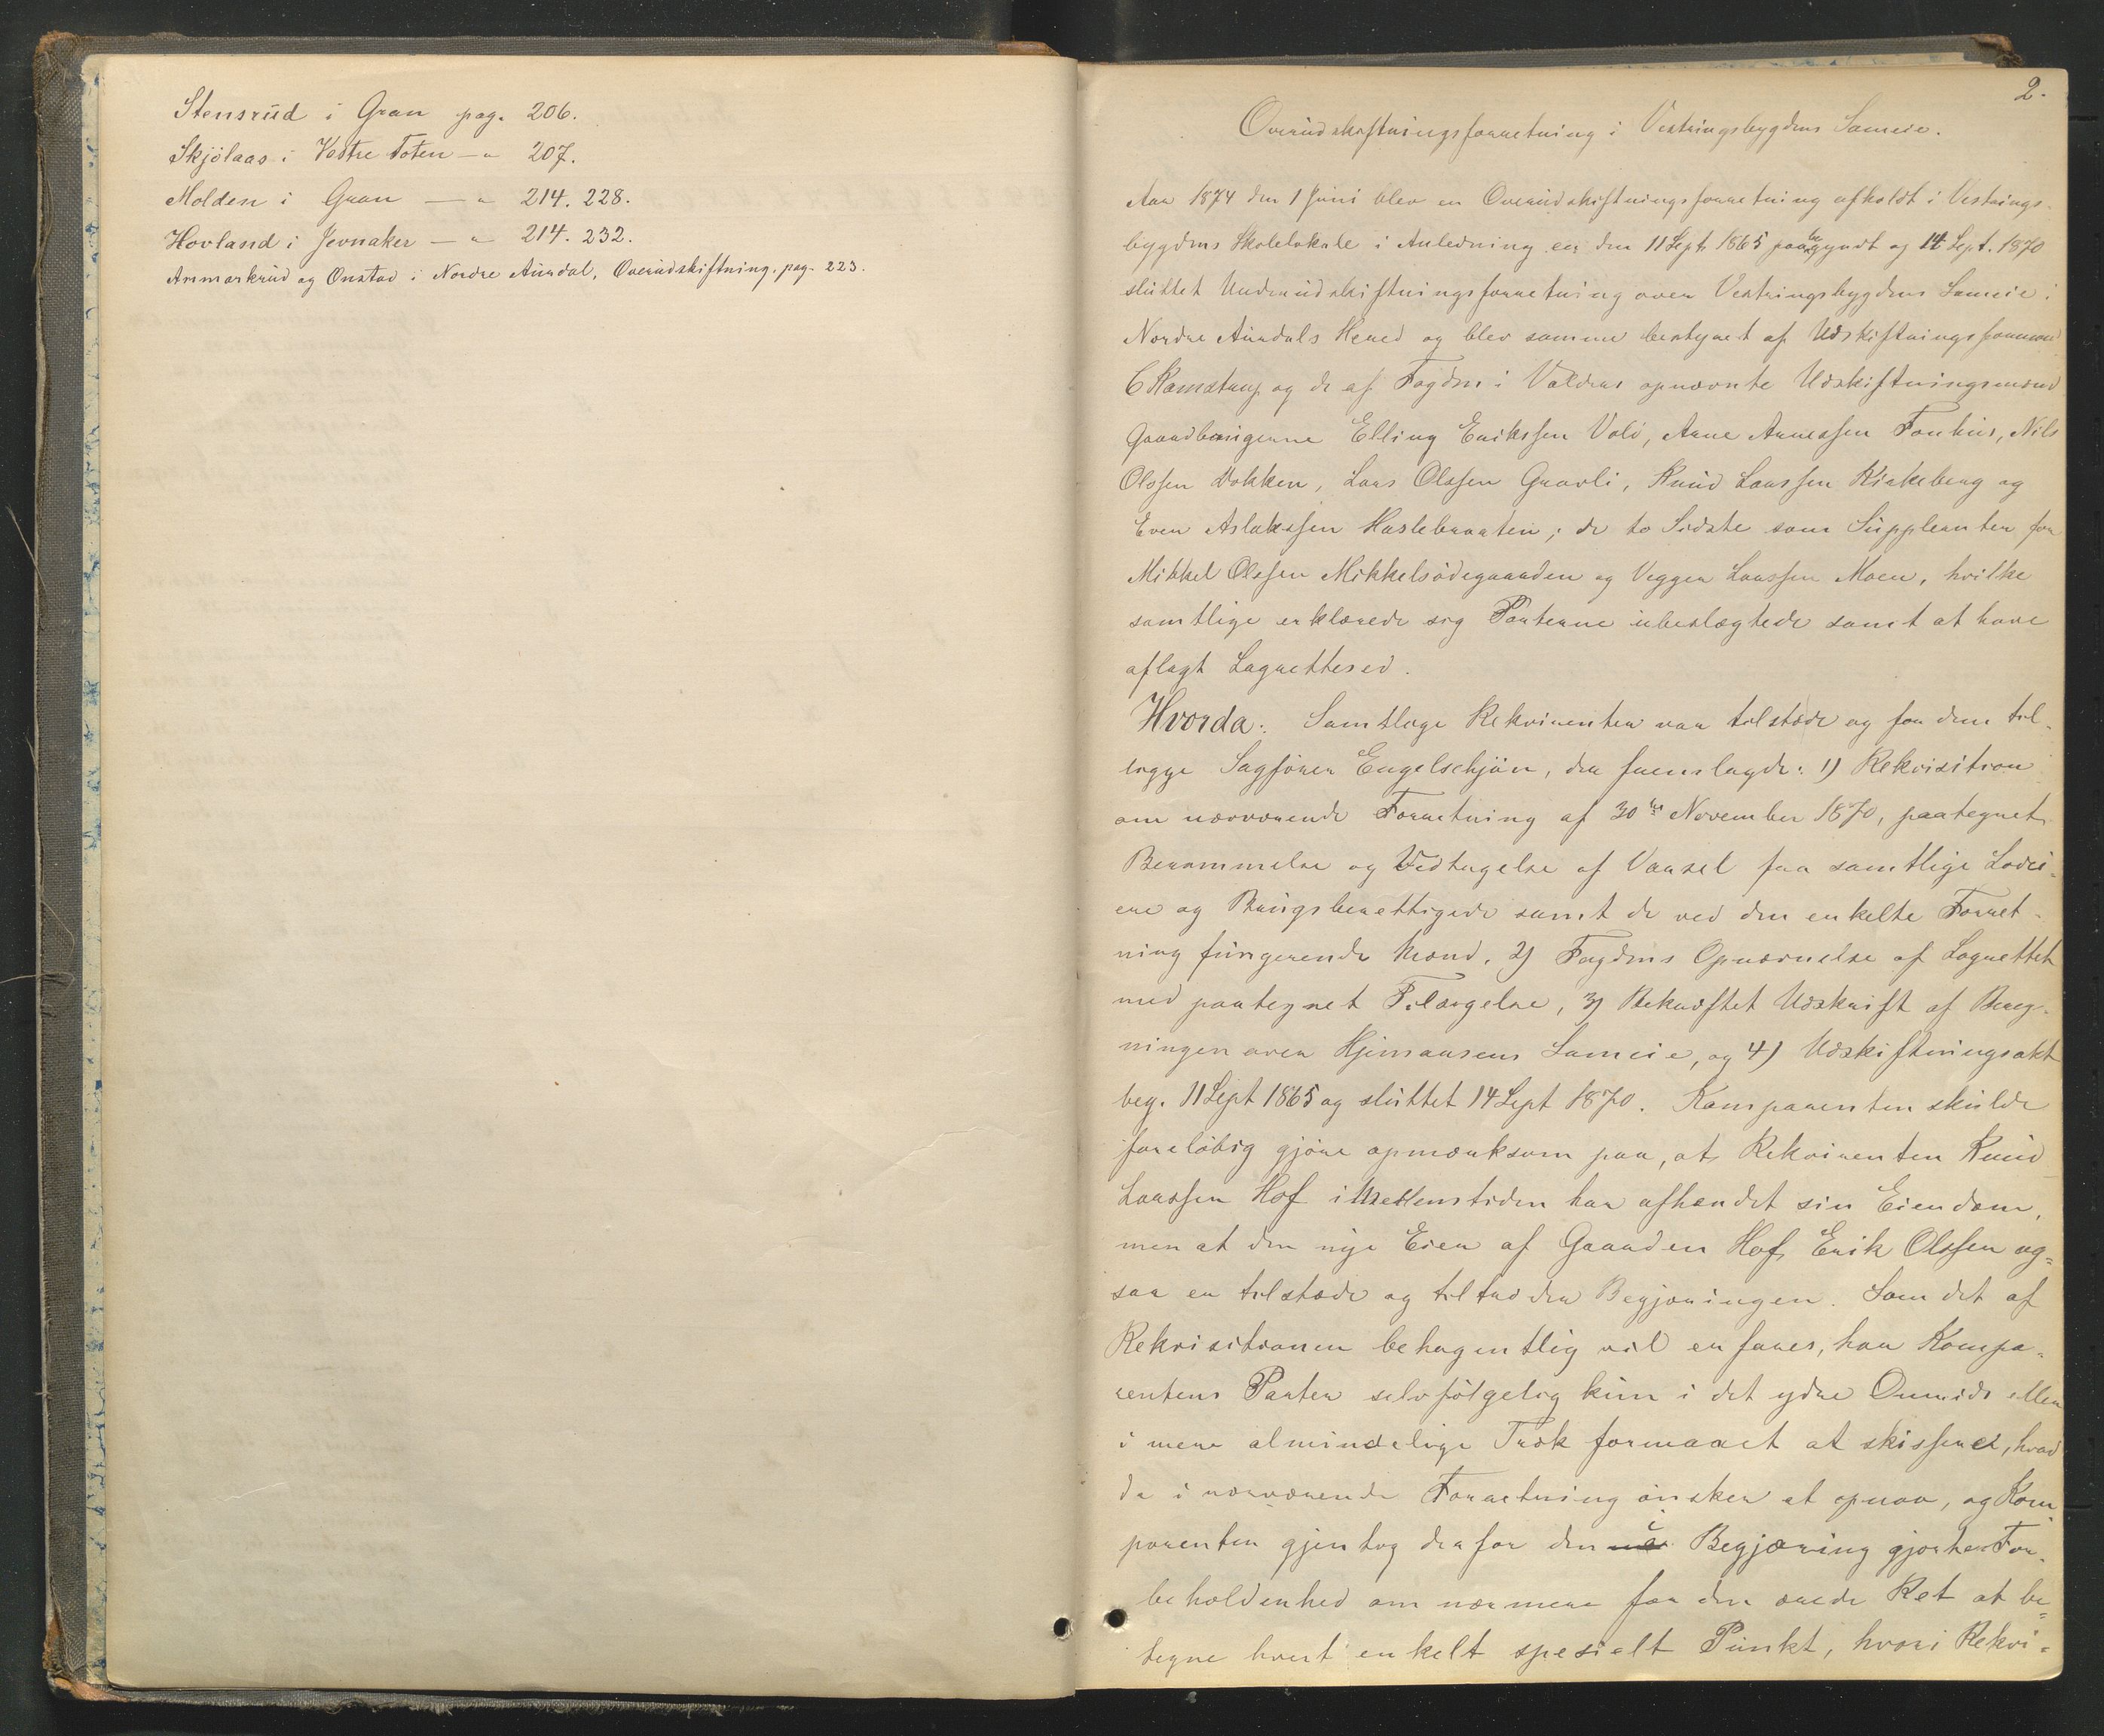 Stensrud i Gran pag. 206.
Skjölaas i Vestre Toten — " 207.
Molden i Gran — " 214. 228.
Hovland i Jevnaker — " 214. 232.
Ammarkrud og Onstad i Nordre Aurdal, Overudskiftning, pag. 223.
2.
Overudskiftningsforretning i Vestringsbygdens Sameie.
Aar 1874 den 1 Juni blev en Overudskiftningsforretning afholdt i Vestrings-
bygdens Skolelokale i Anledning en den 11 Sept. 1865 paabegyndt og 14 Sept. 1870
sluttet Underudskiftningsforretning over Vestringsbygdens Sameie i
Nordre Aurdals Hered og blev samme bestyret af Udskiftningsformand
C Ramstrup og de af Fogden i Valders opnævnte Udskiftningsmænd
Gaardbrugerne Elling Erikssen Vold, Arne Arnessen Fonhus, Nils
Olssen Dokken, Lars Olssen Gravli, Knud Larssen Kirkeberg og
Even Aslakssen Haslebraaten; de to Sidste som Suppleanter for
Mikkel Olssen Mikkelsödegaarden og Vegger Larssen Moen, hvilke
samtlige erklærede sig Parterne ubeslægtede samt at have
aflagt Lagrettesed.
Hvorda: Samtlige Rekvirenter var tilstede og for dem til-
ligge Sagförer Engelschjön, der fremlagde: 1) Rekvisition
om nærværende Forretning af 30te November 1870, paategnet
Berammelse og Vedtagelse af Varsel fra samtlige Lodei-
ere og Brugsberettigede samt de ved den enkelte Forret-
ning fungerende Mænd. 2) Fogdens Opnævnelse af Lagrettet
med paategnet Tilsigelse, 3) Bekræftet Udskrift af Bereg-
ningen over Hjemaasens Sameie, og 4) Udskiftningsakt
beg. 11 Sept 1865 og sluttet 14 Sept 1870. Komparenten skulde
forelöbig gjöre opmærksom paa, at Rekvirenten Knud
Larssen Hof i Mellemtiden har afhændet sin Eiendom,
men at den nye Eier af Gaarden Hof, Erik Olssen og-
saa er tilstæde og tiltræder Begjæringen. Som det af
Rekvisitionen behagentlig vil erfares, har Kompa-
rentens Parter selvfölgelig kun i det ydre Omrids eller
i mere almindelige Træk formaaet at skissere, hvad
de i nærværende Forretning önsker at opnaa, og Kom
parenten gjentog derfor den i Begjæring gjorte For-
beholdenhed om nærmere for den ærede Ret at be-
tegne hvert enkelt spesielt Punkt, hvori Rekvi-